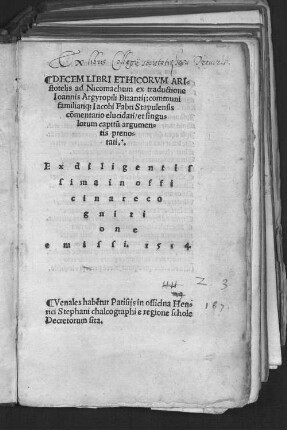 Ex libris Collegii
¶DECEM LIBRI ETHICORVM ARI-
stotelis ad Nicomachum ex traductione
Ioannis Argyropili Bizantij: communi
familiariq; Iacobi Fabri Stapulensis
cōmentario elucidati / et singu-
lorum capitū argumen-
tis prenotati.
E x d i l i g e n t i s
s i m a i n o f f i
c i n a r e c o
g n i t i
o n e
e m i s s i . 1 5 1 4
¶Venales habētur Parisijs in officina Hen-
rici Stephani chalcographi e regione schole
Decretorum sita.